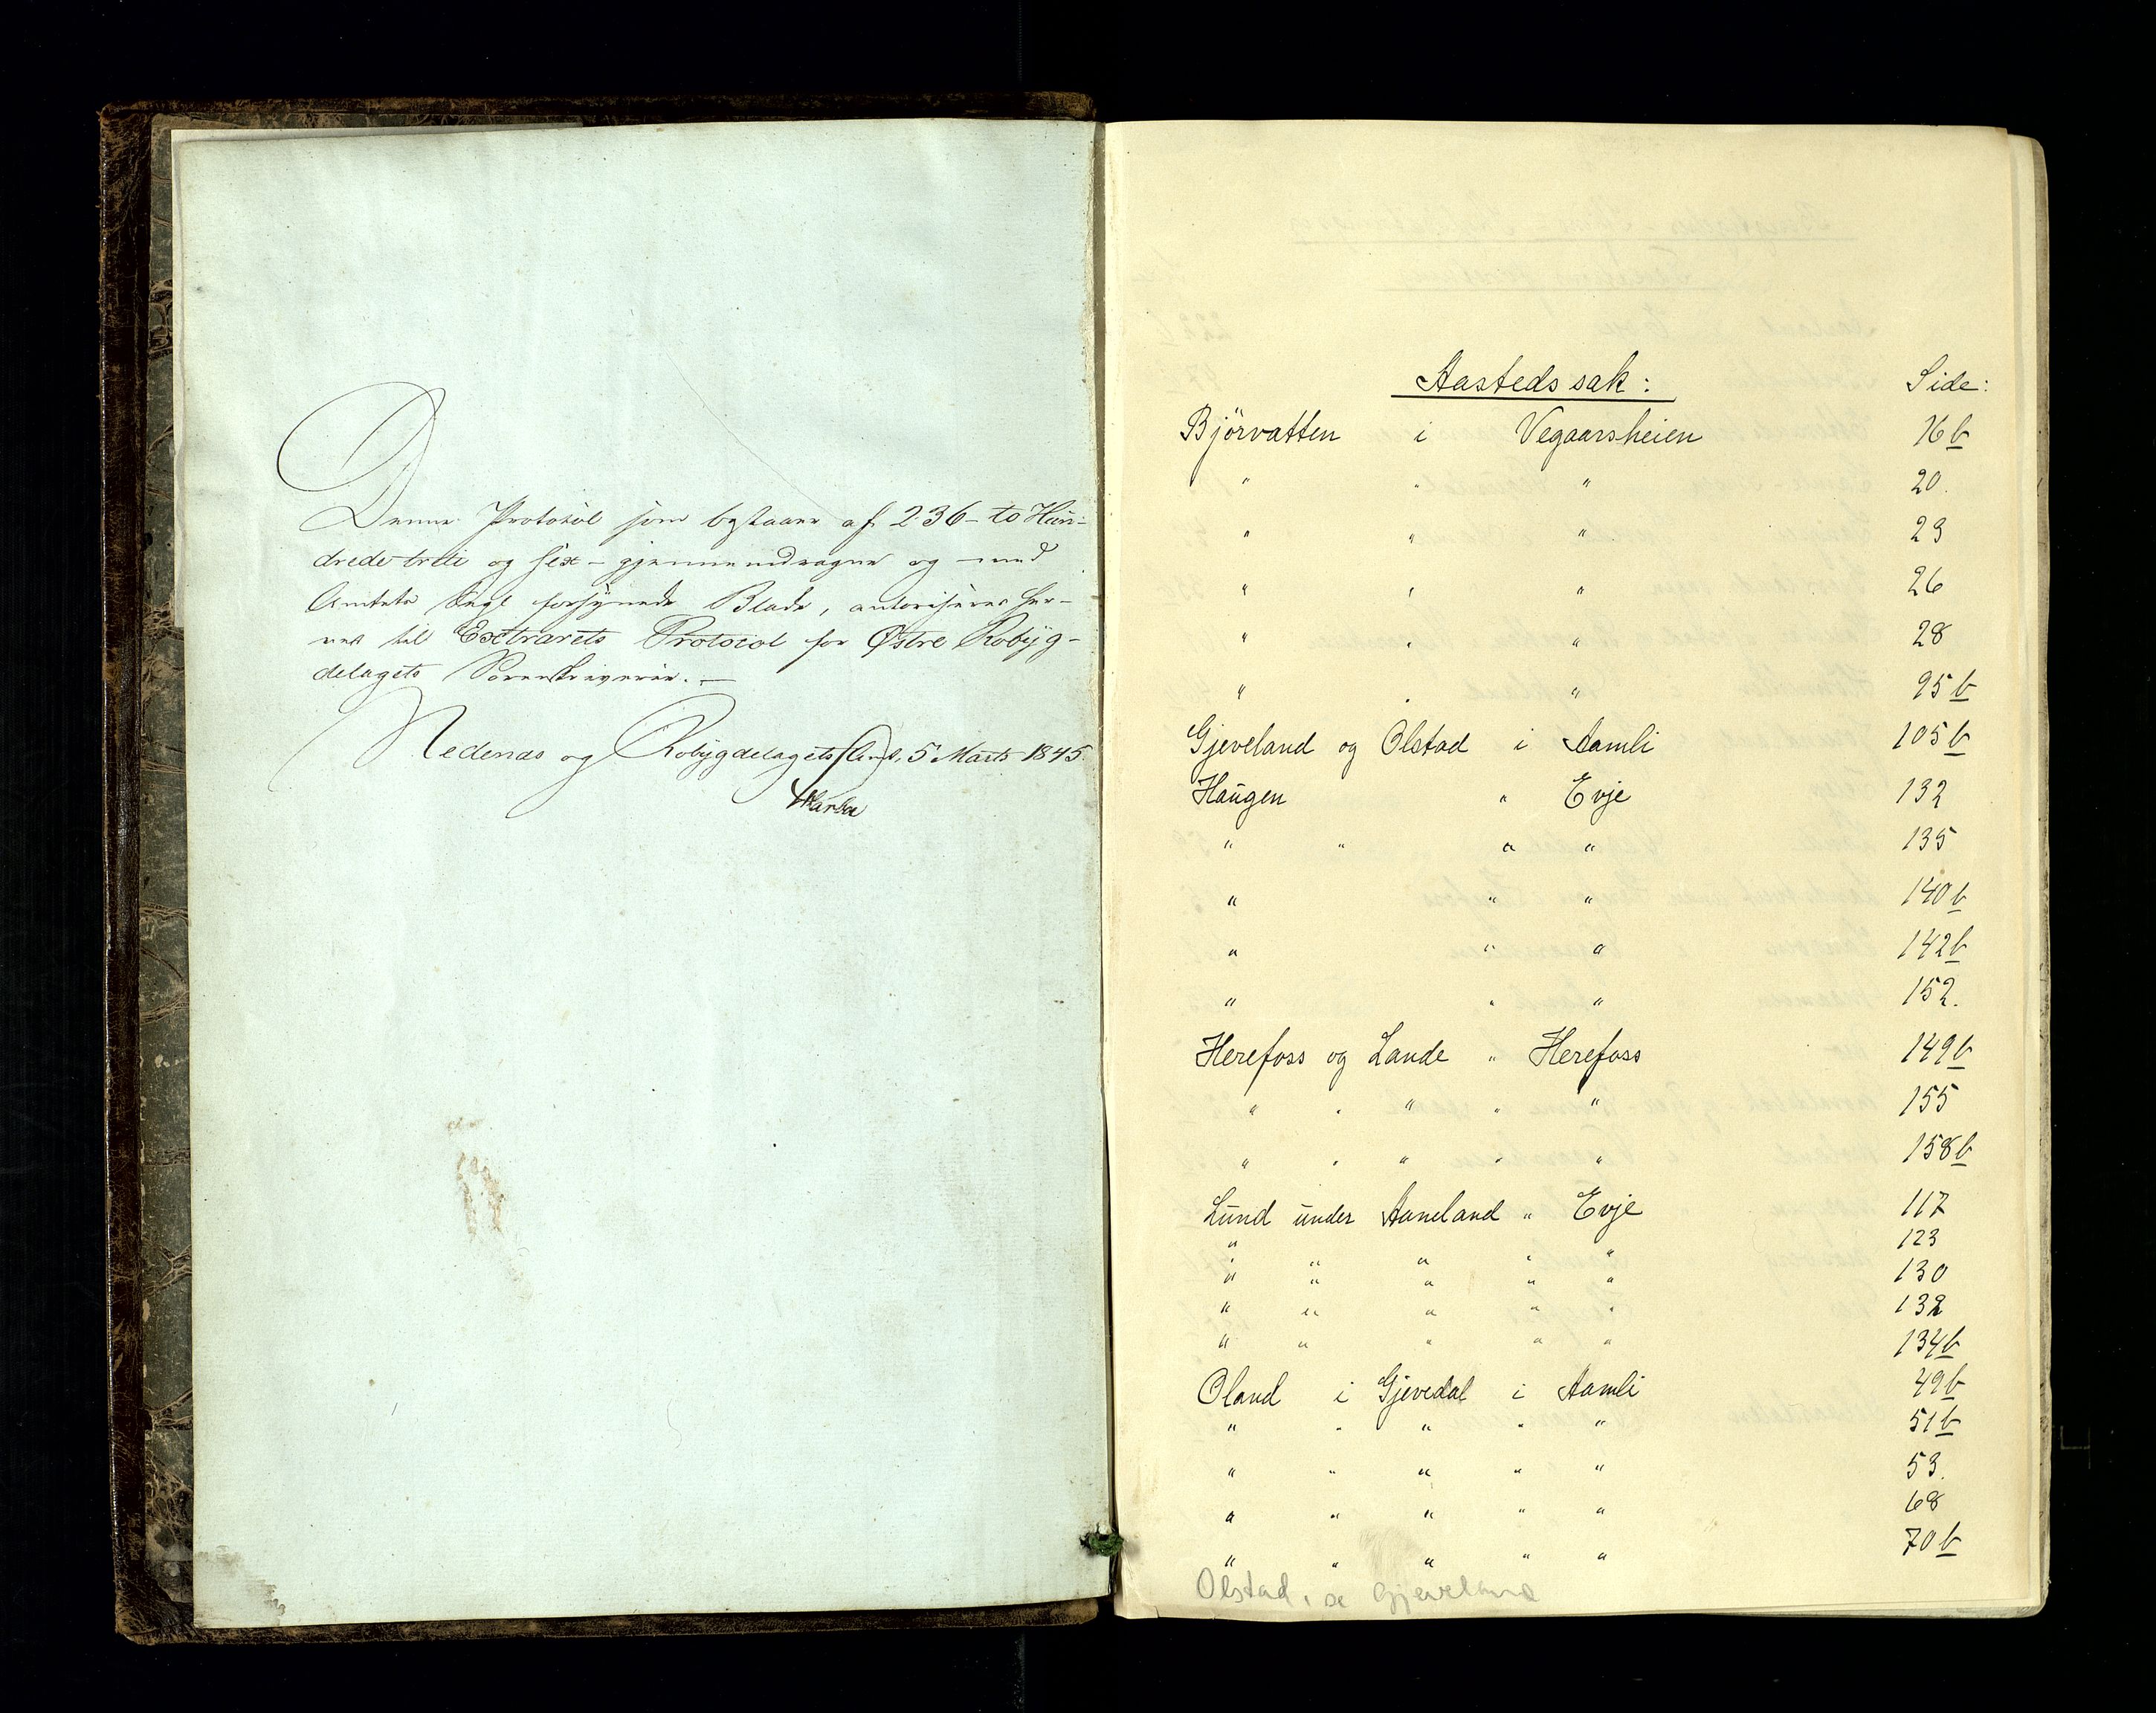 Denne Protokol som bestaaer af 236 - to Hun-
drede treti og sex - gjennemdragne og med
Amtets Segl forsynede Blade, autoriseres her-
ved til Extrarets Protocol for Østre Robyg-
delagets Sorenskriverie. -
Nedenæs og Robygdelagets Amt, 5 Marts 1845.
Aastedssak: Side:
Björvatten i Vegaarsheien 16b
" " " 20.
" " " 23
" " " 26
" " " 28
" " " 95b
Gjeveland og Olstad i Aamli 105b
Haugen " Evje 132
" " " " 135
" " " 140b
" " " 142b
" " " 152.
Herefoss og Lande " Herefoss 149b
" " " " " 155
" " " " " 158b
Lund under Aaneland " Evje 117
" " " " " 123
" " " " " 130
" " " " " 132
" " " " " 134b
Oland i Gjevedal i Aamli 49b
" " " " " 51b
" " " " " 53.
" " " " " 68
" " " " " 70b
Olstad, se Gjeveland